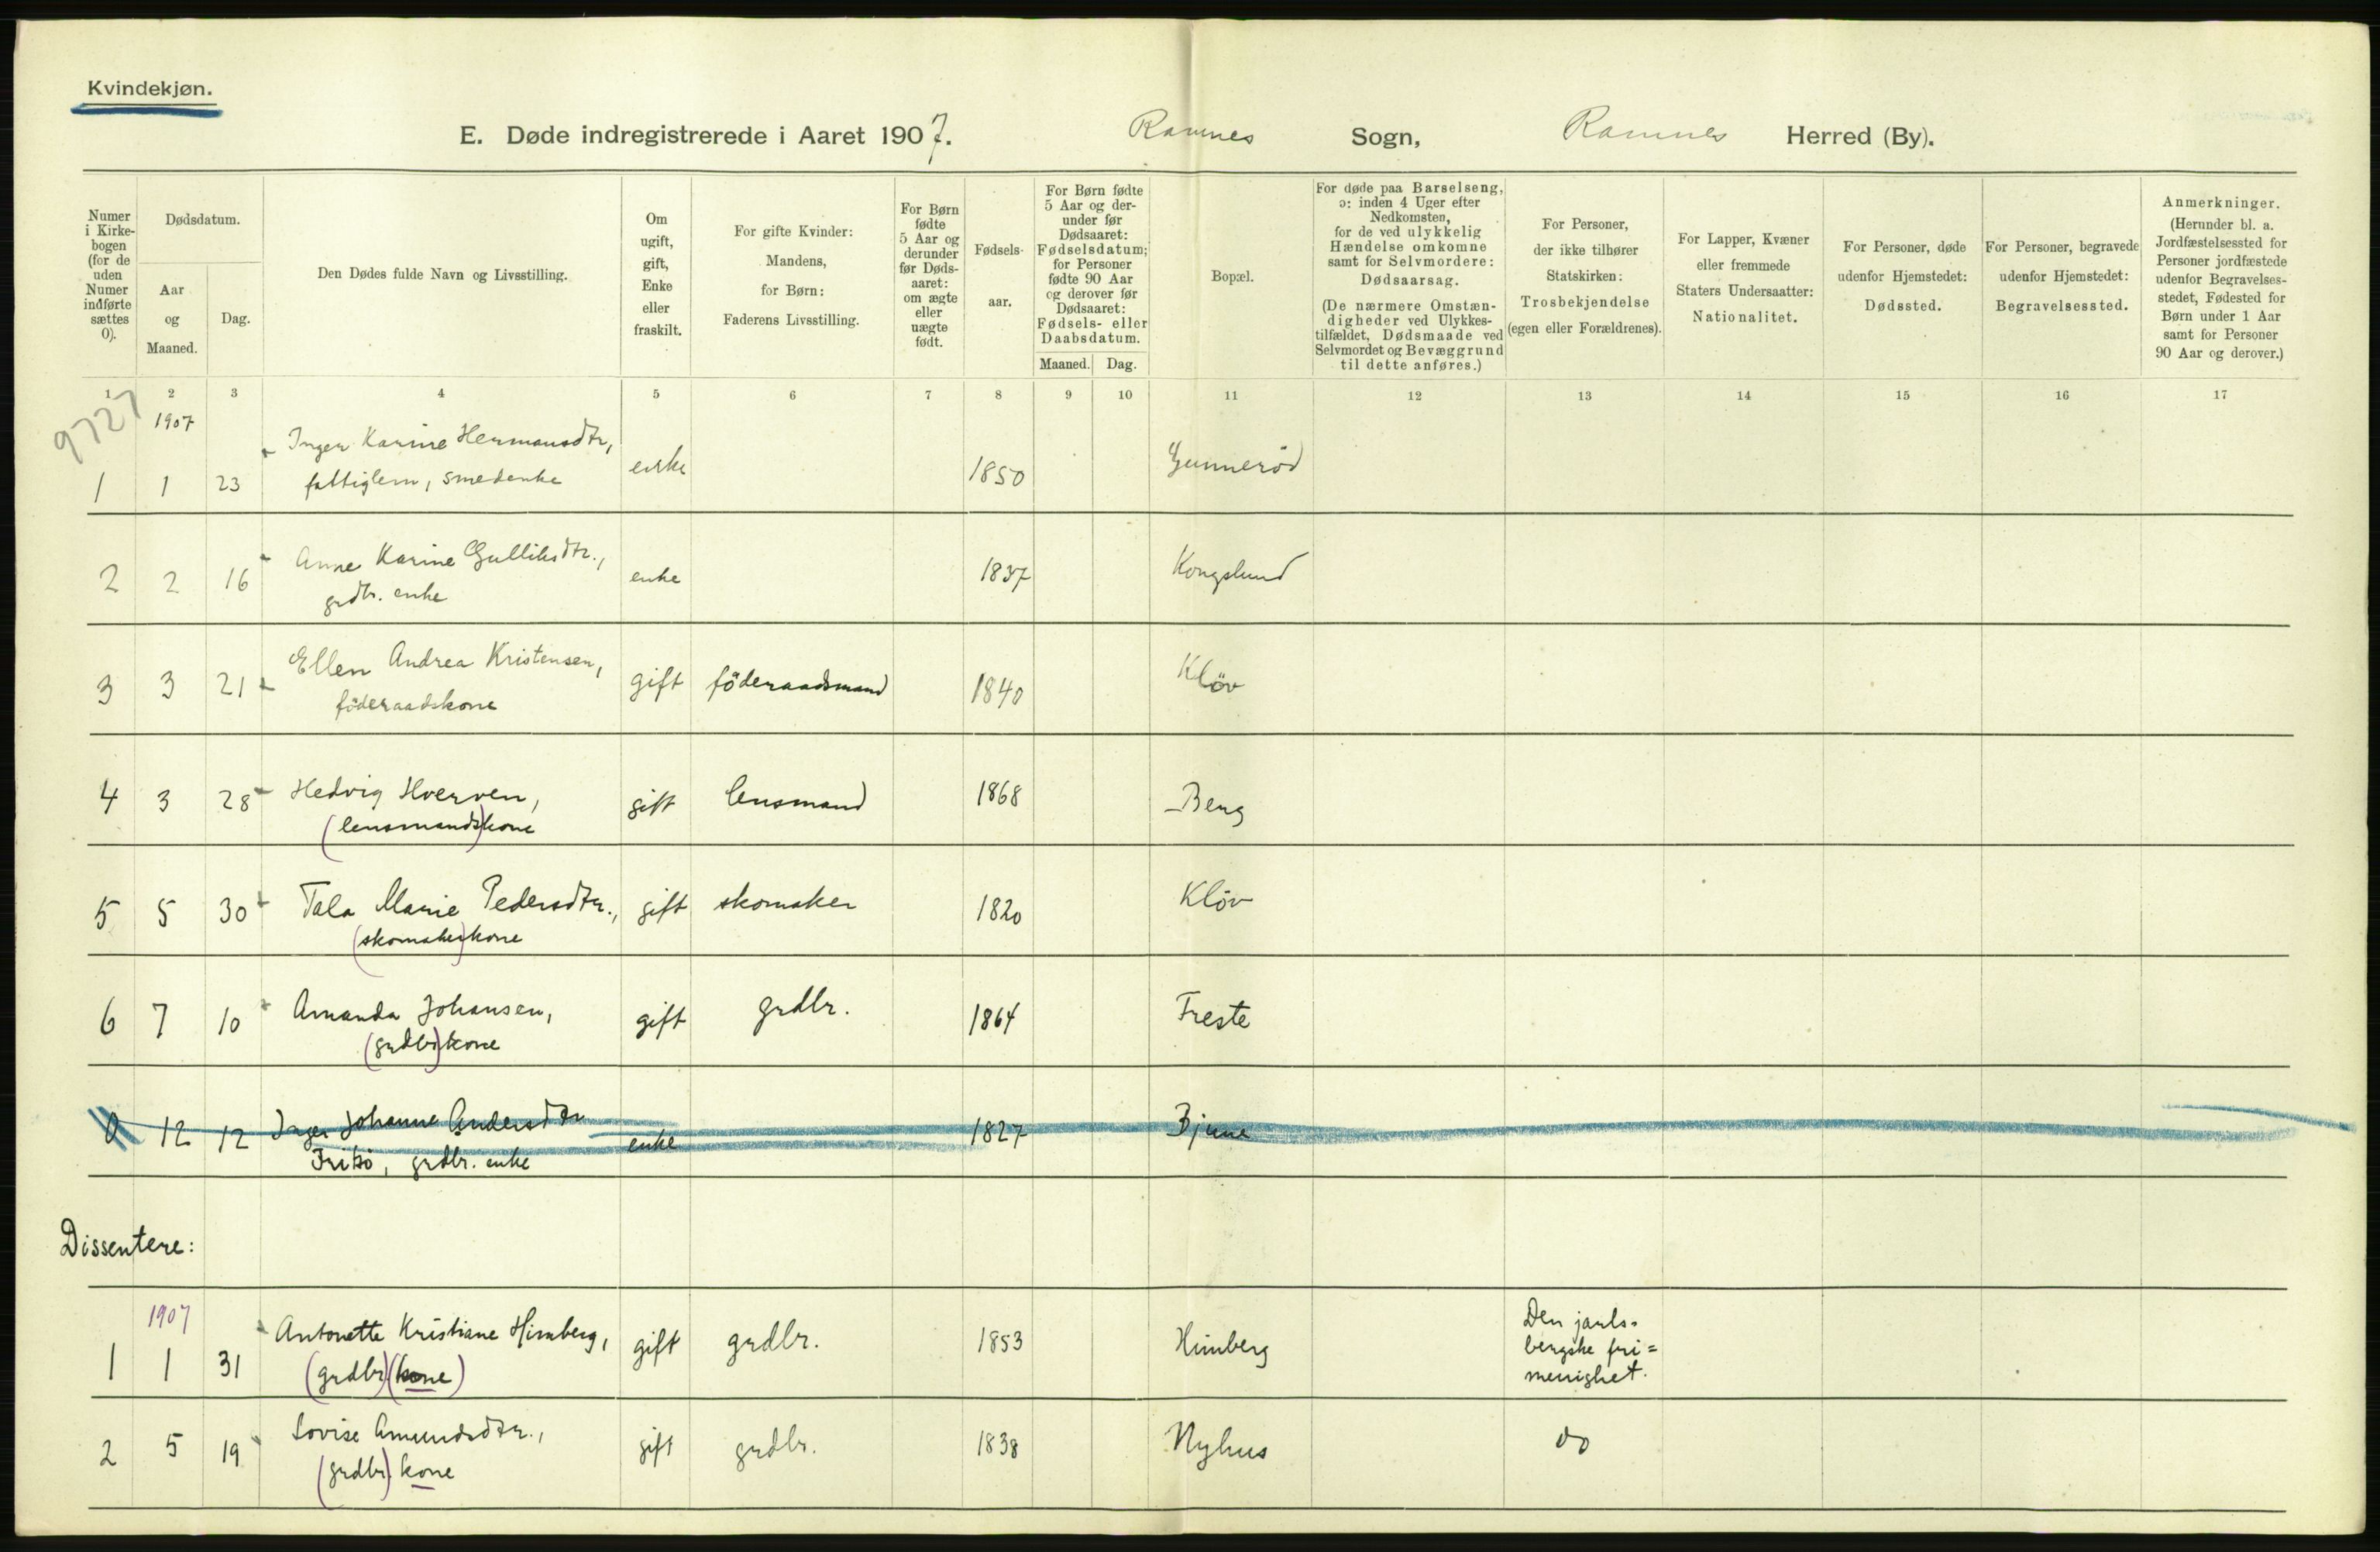 Kvindekjøn.
E. Døde indregistrerede i Aaret 1907. Ramnes Sogn, Ramnes Herred (By).
Numer
i Kirke-
bogen
(for de
uden
Numer
indførte
sættes
0).
Dødsdatum.
Aar
og
Maaned.
Dag.
Den Dødes fulde Navn og Livsstilling.
Om
ugift,
gift,
Enke
eller
fraskilt.
For gifte Kvinder:
Mandens,
for Børn:
Faderens Livsstilling.
For Børn
fødte
5 Aar og
derunder
før Døds-
aaret:
om ægte
eller
uægte
født.
Fødsels-
aar.
For Børn fødte
5 Aar og der-
under før
Dødsaaret:
Fødselsdatum;
for Personer
fødte 90 Aar
og derover før
Dødsaaret:
Fødsels- eller
Daabsdatum.
Maaned. Dag.
Bopæl.
For døde paa Barselseng,
ɔ: inden 4 Uger efter
Nedkomsten,
for de ved ulykkelig
Hændelse omkomne
samt for Selvmordere:
Dødsaarsag.
(De nærmere Omstæn-
digheder ved Ulykkes-
tilfældet, Dødsmaade ved
Selvmordet og Bevæggrund
til dette anføres.)
For Personer,
der ikke tilhører
Statskirken:
Trosbekjendelse
(egen eller Forældrenes).
For Lapper, Kvæner
eller fremmede
Staters Undersaatter:
Nationalitet.
For Personer, døde
udenfor Hjemstedet:
Dødssted.
For Personer, begravede
udenfor Hjemstedet:
Begravelsessted.
Anmerkninger.
(Herunder bl. a.
Jordfæstelsessted for
Personer jordfæstede
udenfor Begravelses-
stedet, Fødested for
Børn under 1 Aar
samt for Personer
90 Aar og derover.)
1 2 3 4 5 6 7 8 9 10 11 12 13 14 15 16 17
9727
1907
1 1 23 Inger Karine Hermansdtr, enke 1850 Gunnerød
fattiglem, smedenke
2 2 16 Anne Karine Gulliksdtr., enke 1837 Kongslund
grdbr. enke
3 3 21 Ellen Andrea Kristensen, gift föderaadsmand 1840 Klöv
föderaadskone
4 3 28 Hedvig Hverven, gift lensmand 1868 Berg
(lensmands)kone
5 5 30 Tala Marie Pedersdtr., gift skomaker 1820 Klöv
(skomaker)kone
6 7 10 Amanda Johansen, gift grdbr. 1864 Freste
(grdbr)kone
0 12 12 Inger Johanne Andersdtr enke 1827 Bjune
grdbr. enke
Dissentere:
1907
1 1 31 Antonette Kristiane Himberg, gift grdbr. 1853 Himberg Den jarls-
bergske fri=
menighet.
(grdbr)(kone)
2 5 19 Lovise Amundsdtr., gift grdbr. 1838 Nyhus do
(grdbr) kone